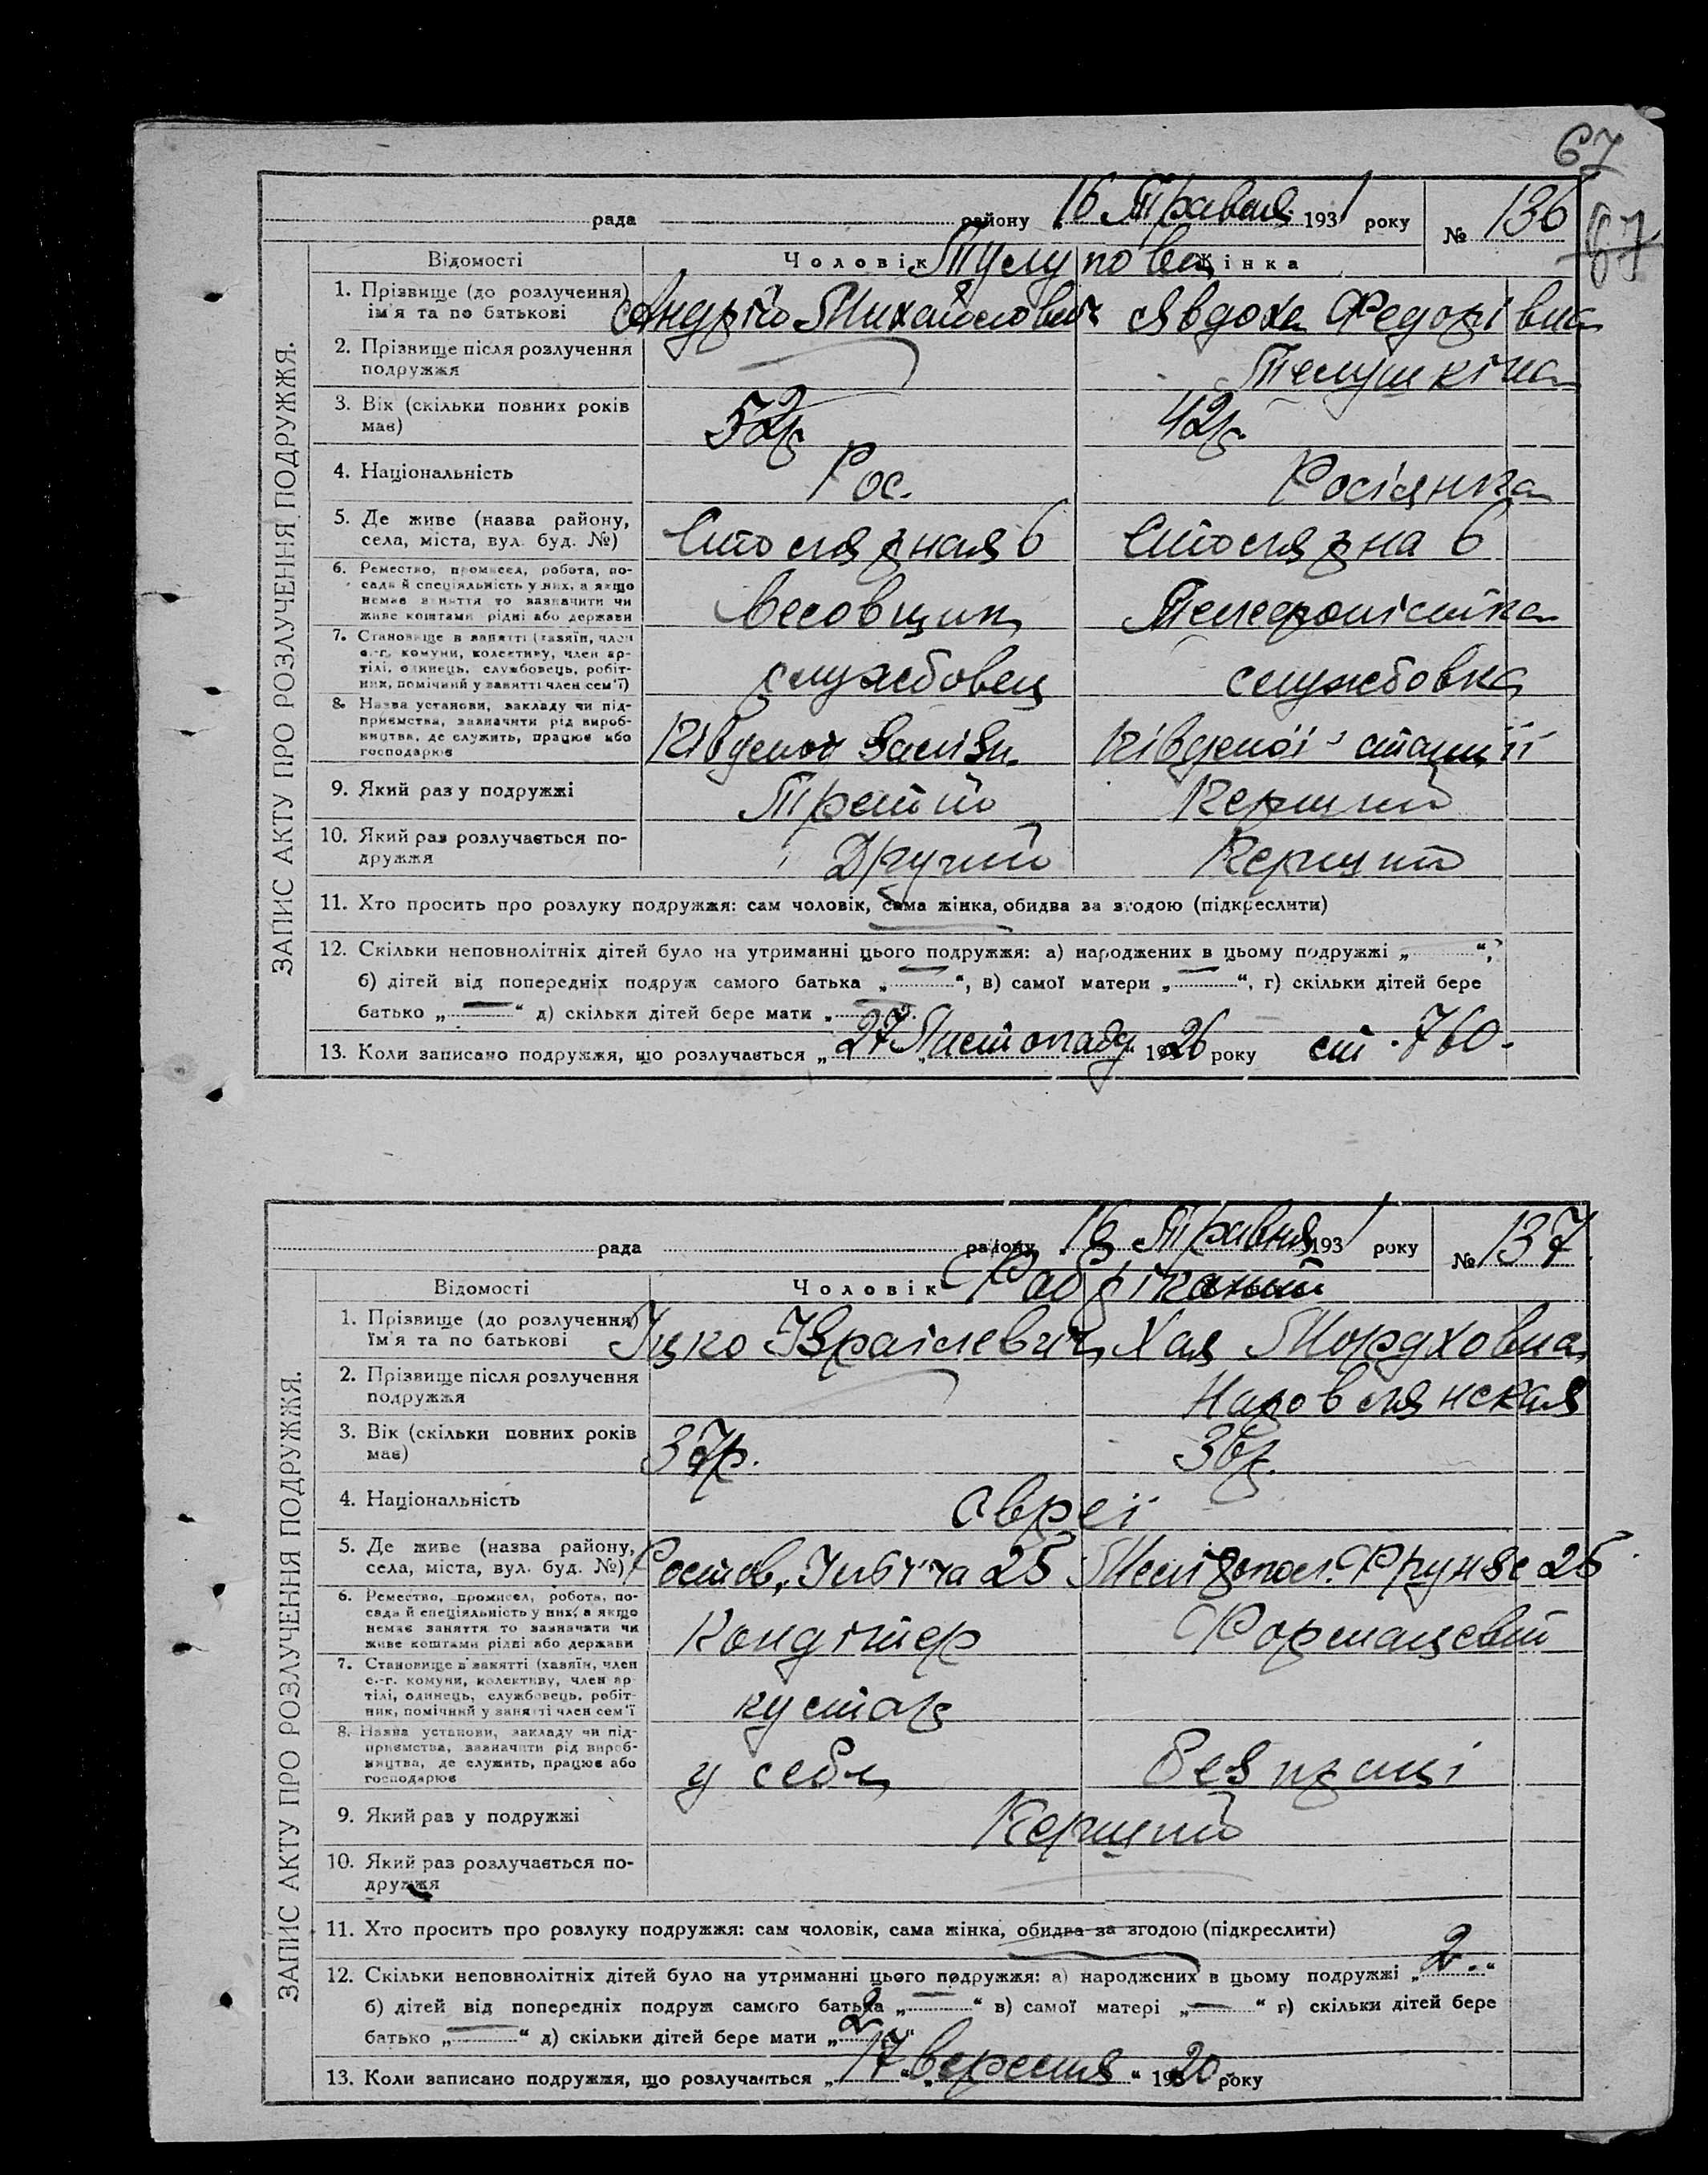 67
67
рада району 16 Травня 1931 року № 136
Відомості Чоловік Жінка
Тулупови
1. Прізвище (до розлучення) Андрій Михайлович Явдоха Федорівна
ім'я та по батькові
2. Прізвище після розлучення Телушкіна
подружжя
3. Вік (скільки повних років 52р 42р.
має)
4. Національність Рос. Росіянка
5. Де живе (назва району, Столярная 6 Столярна 6
села, міста, вул. буд. №)
6. Ремество, промисел, робота, по-
сада й спеціяльність у них, а якщо
немає заняття то зазначити чи Весовщик Телефоністка
живе коштами рідні або держави
7. Становище в занятті (хазяїн, член
с.-г. комуни, колективу, член ар-
тілі, одинець, службовець, робіт- службовец службовка
ник, помічний у занятті член сем'ї)
8. Назва установи, закладу чи під-
приємства, зазначити рід вироб-
ництва, де служить, працює або Південої Залізн. Південої станції
господарює
9. Який раз у подружжі Третий Перший
10. Який раз розлучається по- Другий Перший
дружжя
11. Хто просить про розлуку подружжя: сам чоловік, сама жінка, обидва за згодою (підкреслити)
12. Скільки неповнолітніх дітей було на утриманні цього подружжя: а) народжених в цьому подружжі „ “,
б) дітей від попередніх подруж самого батька „ — “, в) самої матери „ — “, г) скільки дітей бере
батько „ — “ д) скільки дітей бере мати „ — “.
13. Коли записано подружжя, що розлучається „ 27 “ „ Листопаду “ 1926 року ст. 760.
ЗАПИС АКТУ ПРО РОЗЛУЧЕННЯ ПОДРУЖЖЯ.
рада району 16 Травня 1931 року № 137.
Відомості Чоловік
Фабріканый
1. Прізвище (до розлучення) Іцко Ізраілевич Хая Мордховна
ім'я та по батькові
2. Прізвище після розлучення Наровлянская
подружжя
3. Вік (скільки повних років 37р. 36р.
має)
4. Національність Євреї
5. Де живе (назва району, Ростов, Ілбіча 25 Мелітопол. Фрунзе 25
села, міста, вул. буд. №)
6. Ремество, промисел, робота, по-
сада й спеціяльність у них, а якщо
немає заняття то зазначати чи Кондітер Формацевт
живе коштами рідні або держави
7. Становище в занятті (хазяїн, член
с.-г. комуни, колективу, член ар-
тілі, одинець, службовець, робіт- кустар
ник, помічний у занятті член сем'ї
8. Назва установи, закладу чи під-
приємства, зазначити рід вироб-
ництва, де служить, працює або у себя Без праці
господарює
9. Який раз у подружжі Перший
10. Який раз розлучається по-
дружжя
11. Хто просить про розлуку подружжя: сам чоловік, сама жінка, обидва за згодою (підкреслити)
12. Скільки неповнолітніх дітей було на утриманні цього подружжя: а) народжених в цьому подружжі „ 2. “
б) дітей від попередніх подруж самого батька „ — “ в) самої матері „ — “ г) скільки дітей бере
батько „ — “ д) скільки дітей бере мати „ 2 “
13. Коли записано подружжя, що розлучається „ 17 “ „ вересня “ 1920 року
ЗАПИС АКТУ ПРО РОЗЛУЧЕННЯ ПОДРУЖЖЯ.